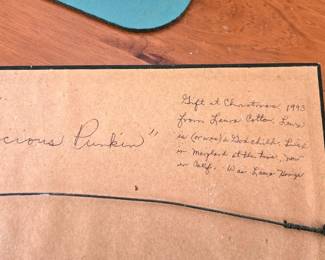 cious Punkin"
Gift at Christmas, 1993
from Laura Cotton. Laura
is (or was) a Godchild. Lived
in Maryland at the time, now
in Calif. Was Laura